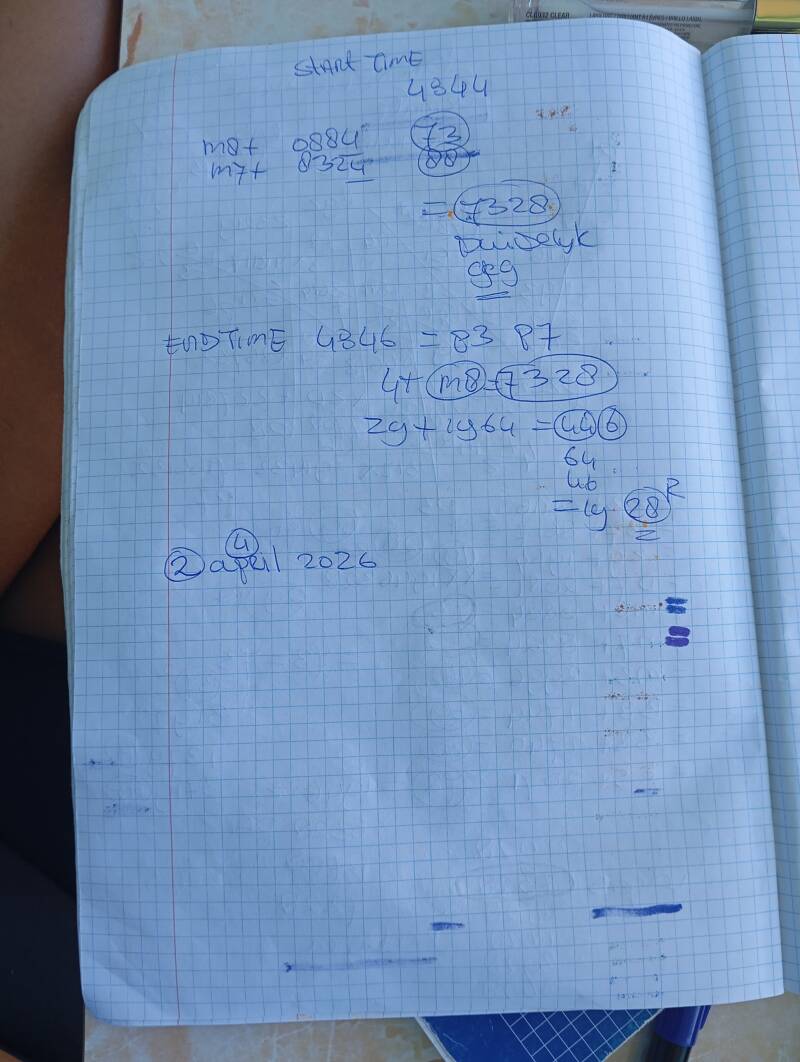 CLEAR
START TIME
4344
m8+ 0884 73
m7+ 8324 88
= 7328
Duidelyk
geg
ENDTIME 4346 = 83 87
4+ m8 = 7328
2y + 1y64 = 446
64
46
= 1y 28 R
4
2 april 2026